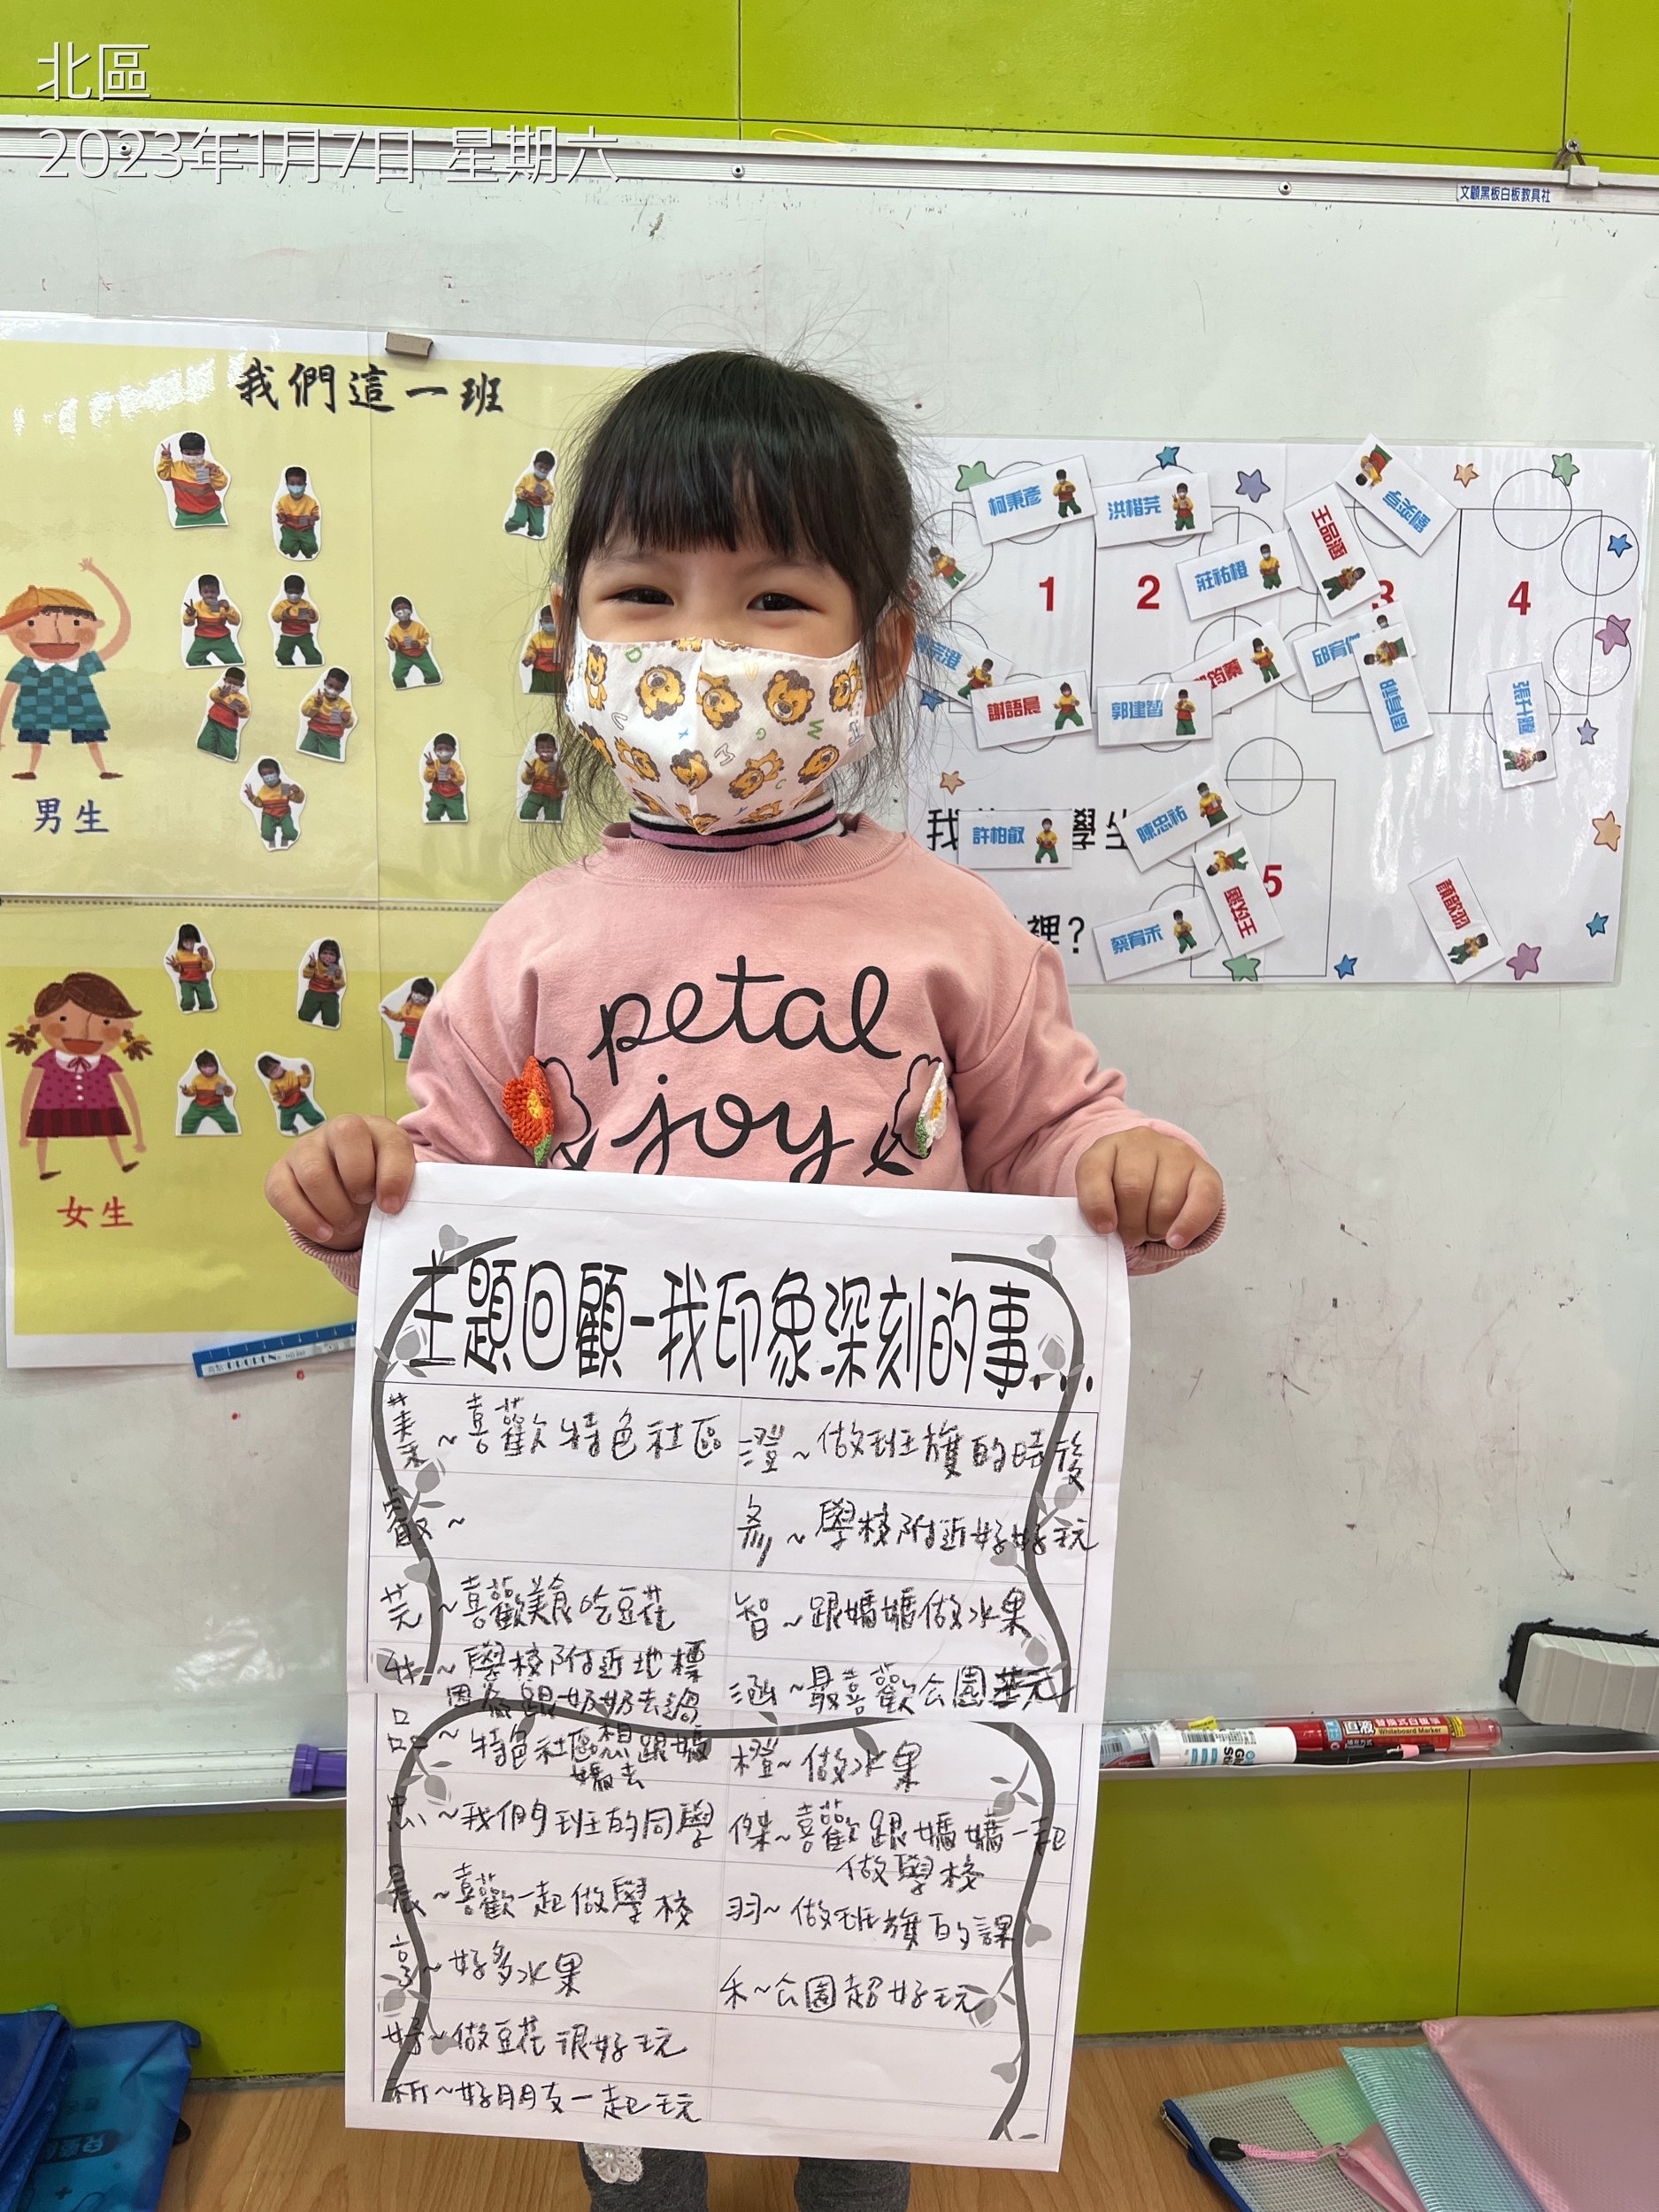 北區
2023年1月7日 星期六
文顧黑板白板教具社
我們這一班
男生
女生
柯秉彥
洪楷芫
莊祐橙
王品涵
劉奕亨
1
2
3
4
謝語晨
郭建智
邱宥
許柏叡
學生
陳忠祐
5
裡?
蔡宥禾
petal
joy
主題回顧-我印象深刻的事...
蓁~喜歡特色社區
叡~
芫~喜歡美食吃豆花
~學校附近地標
因為跟奶奶去過
品~特色社區想跟媽
媽去
忠~我們班的同學
晨~喜歡一起做學校
亨~好多水果
好~做豆花很好玩
析~好朋友一起玩
澄~做班旗的時後
彥~學校附近好好玩
智~跟媽媽做水果
涵~最喜歡公園玩
橙~做水果
傑~喜歡跟媽媽一起
做學校
羽~做班旗的課
禾~公園超好玩
Whiteboard Marker